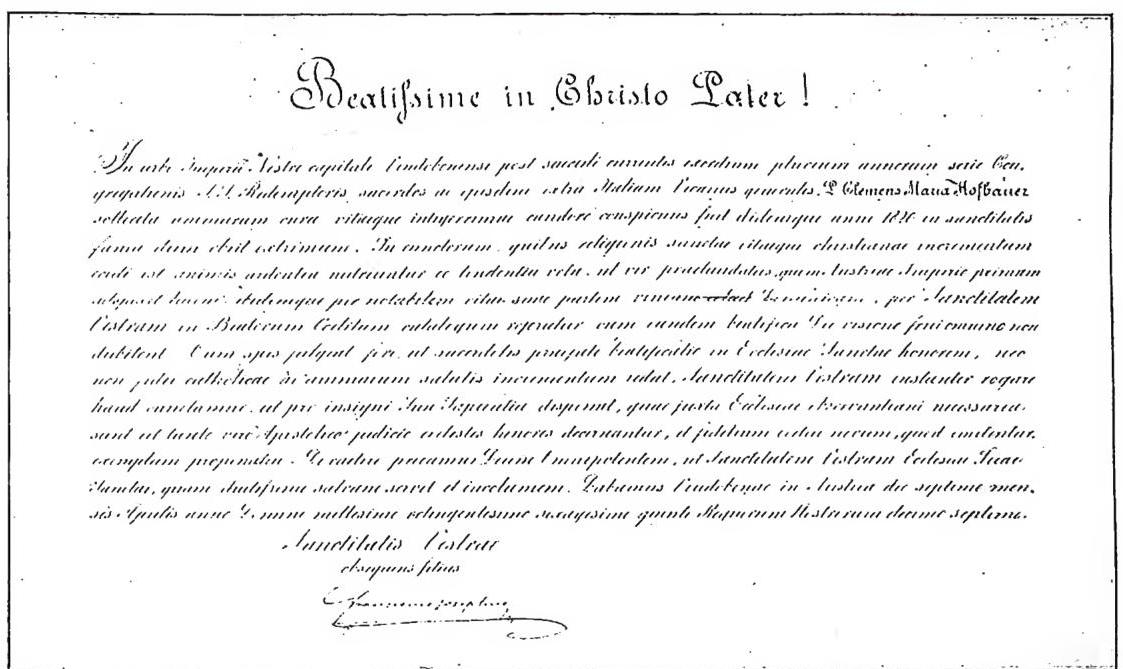 Beatissime in Christo Pater!
In urbe Imperii Nostri capitali Vindobonensi post saeculi currentis exordium plurium annorum serie Con-
gregationis S.S. Redemptoris sacerdos ac ejusdem extra Italiam Vicarius generalis, P. Clemens Maria Hofbauer
sollicita animarum cura vitaeque integerrimae candore conspicuus fuit ibidemque anno 1820 in sanctitatis
fama diem obiit extremum. In cunctorum, quibus religionis sanctae vitaeque christianae incrementum
cordi est animis ardentia nascuntur ac tendentia vota, ut vir praelaudatus, quem Austriae Imperii primum
habuit, itidemque per notabilem vitae suae partem, per Sanctitatem
Vestram in Beatorum Coelitum catalogum referatur cum eundem beatifica Dei visione frui omnino non
dubitent. Cum spes fulgeat fore, ut sacerdotis praefati beatificatio in Ecclesiae Sanctae honorem, nec
non fidei catholicae ac animarum salutis incrementum cedat, Sanctitatem Vestram instanter rogare
haud cunctamur, ut pro insigni Sua Sapientia disponat, quae juxta Ecclesiae observantiam necessaria
sunt ut tanto viro Apostolico judicio coelestes honores decernantur, et fidelium coetui novum, quod imitentur,
exemplum proponatur. De caetero precamur Deum Omnipotentem, ut Sanctitatem Vestram Ecclesiae Suae
Sanctae, quam diutissime salvam servet et incolumem. Dabamus Vindobonae in Austria die septima men-
sis Aprilis anno Domini millesimo octingentesimo sexagesimo quinto Regnorum Nostrorum decimo septimo.
Sanctitatis Vestrae
obsequens filius
Franciscus Josephus